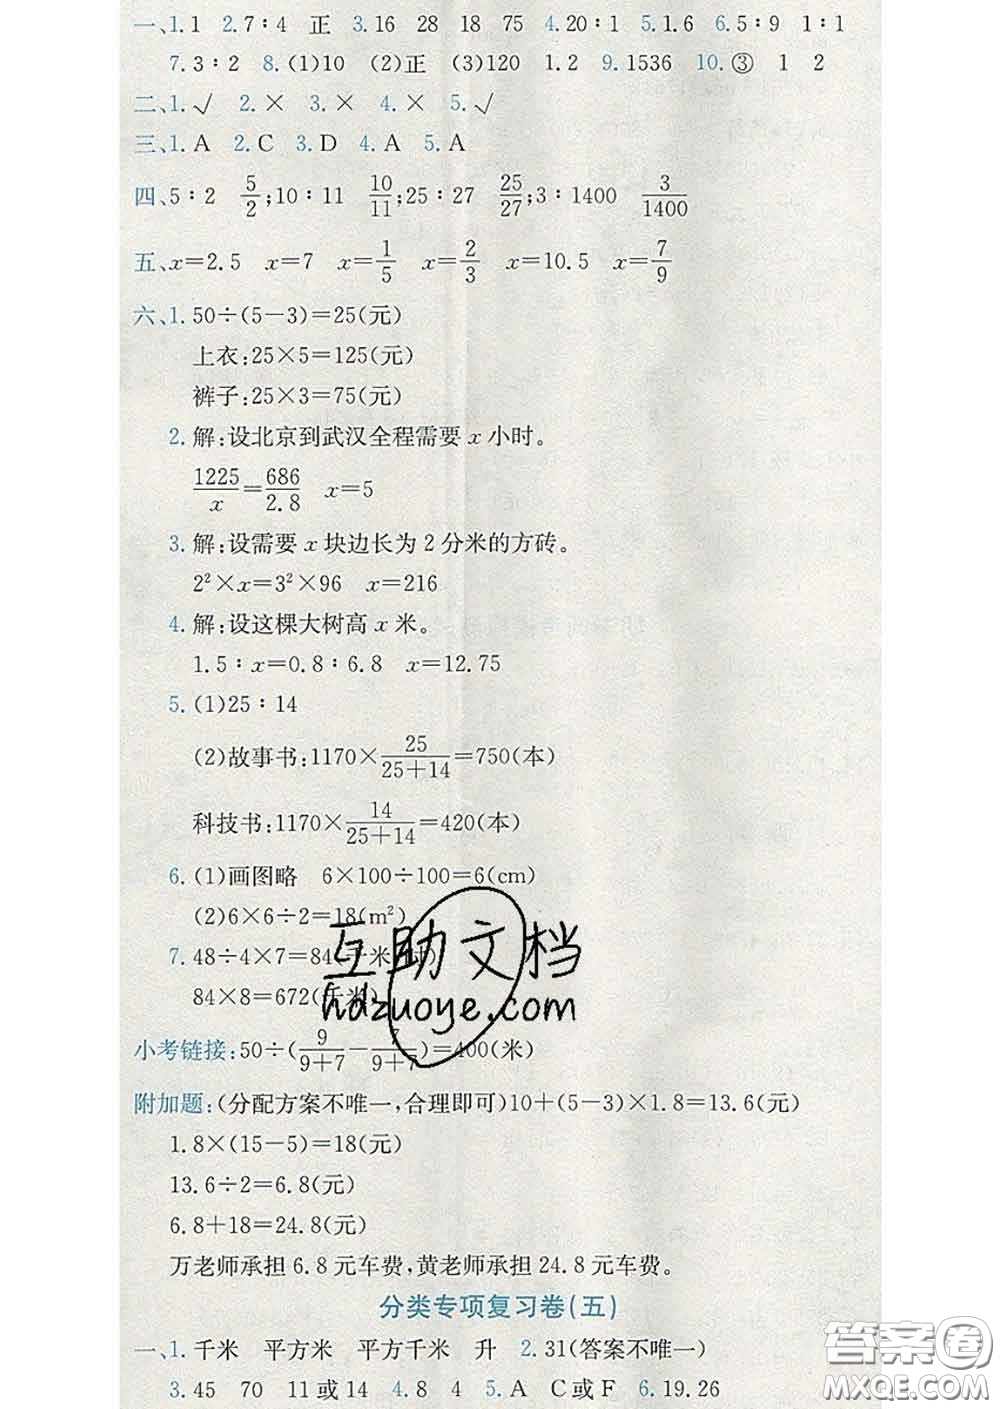 一、1.1 2.7∶4 正 3.16 28 18 75 4.20∶1 5.1.6 6.5∶9 1∶1
7.3∶2 8.(1)10 (2)正 (3)120 1.2 9.1536 10.③ 1 2
二、1.√ 2.× 3.× 4.× 5.√
三、1.A 2.C 3.D 4.A 5.A
四、5∶2 5/2;10∶11 10/11;25∶27 25/27;3∶1400 3/1400
五、x=2.5 x=7 x=1/5 x=2/3 x=10.5 x=7/9
六、1.50÷(5-3)=25(元)
上衣:25×5=125(元)
裤子:25×3=75(元)
2.解:设北京到武汉全程需要 x 小时。
1225/x=686/2.8 x=5
3.解:设需要 x 块边长为 2 分米的方砖。
2²×x=3²×96 x=216
4.解:设这棵大树高 x 米。
1.5∶x=0.8∶6.8 x=12.75
5.(1)25∶14
(2)故事书:1170×25/(25+14)=750(本)
科技书:1170×14/(25+14)=420(本)
6.(1)画图略 6×100÷100=6(cm)
(2)6×6÷2=18(m²)
7.48÷4×7=84(千米)
84×8=672(千米)
互助文档
hdzuoye.com
小考链接:50÷(9/(9+7)-7/(9+7))=400(米)
附加题:(分配方案不唯一,合理即可)10+(5-3)×1.8=13.6(元)
1.8×(15-5)=18(元)
13.6÷2=6.8(元)
6.8+18=24.8(元)
万老师承担 6.8 元车费,黄老师承担 24.8 元车费。
分类专项复习卷(五)
一、1.千米 平方米 平方千米 升 2.31(答案不唯一)
3.45 70 11或14 4.8 4 5.A C或F 6.19.26
答案圈
MXQE.COM